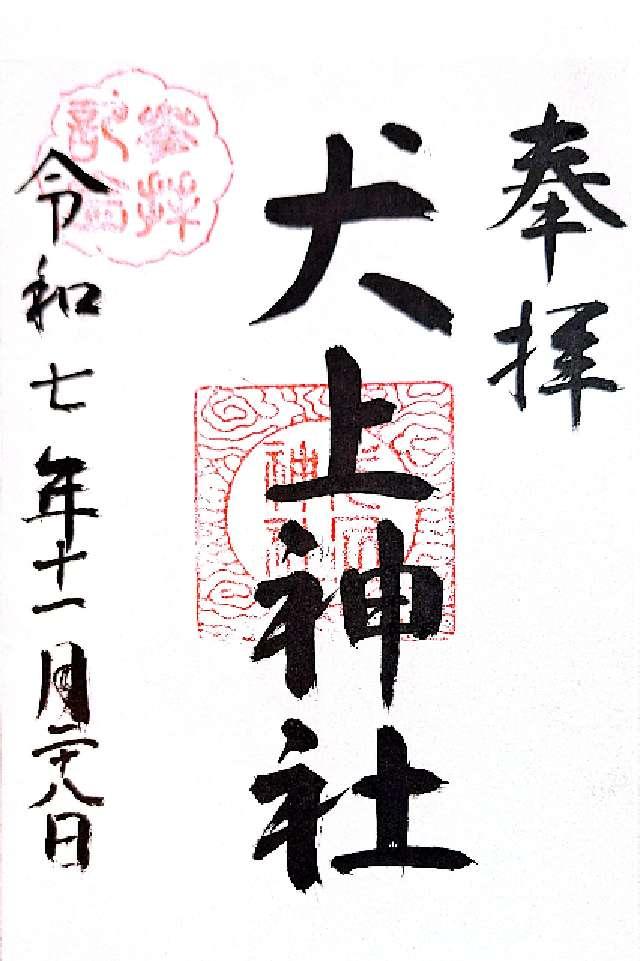 奉拝
犬上神社
令和七年十一月二十八日
参拝
記念